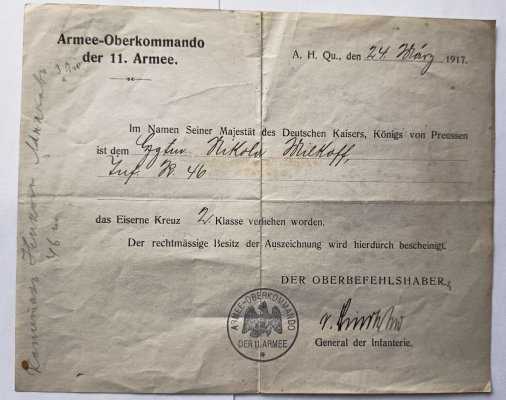 Armee-Oberkommando
der 11. Armee.
A. H. Qu., den 24. März 1917.
Im Namen Seiner Majestät des Deutschen Kaisers, Königs von Preussen
ist dem Nikola Milkoff,
Inf. R. 46
das Eiserne Kreuz 2. Klasse verliehen worden.
Der rechtmässige Besitz der Auszeichnung wird hierdurch bescheinigt.
DER OBERBEFEHLSHABER.
ARMEE-OBERKOMMANDO
DER 11. ARMEE
*
General der Infanterie.